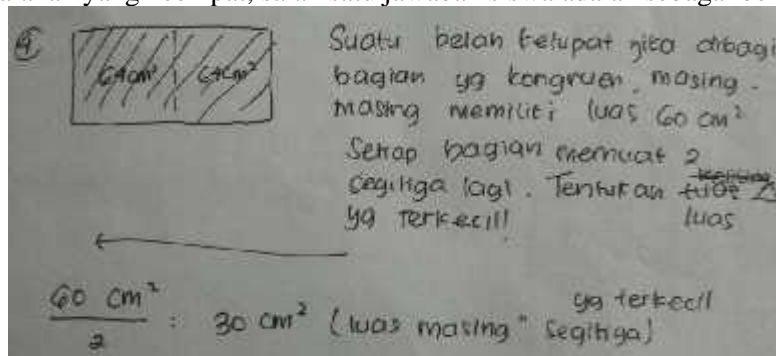 4
64cm² 64cm²
Suatu belah ketupat jika dibagi
bagian yg kongruen, masing-
masing memiliki luas 60 cm²
Setiap bagian memuat 2
segitiga lagi. Tentukan
yg terkecil! luas
60 cm²
2
: 30 cm² (luas masing" segitiga)
yg terkecil